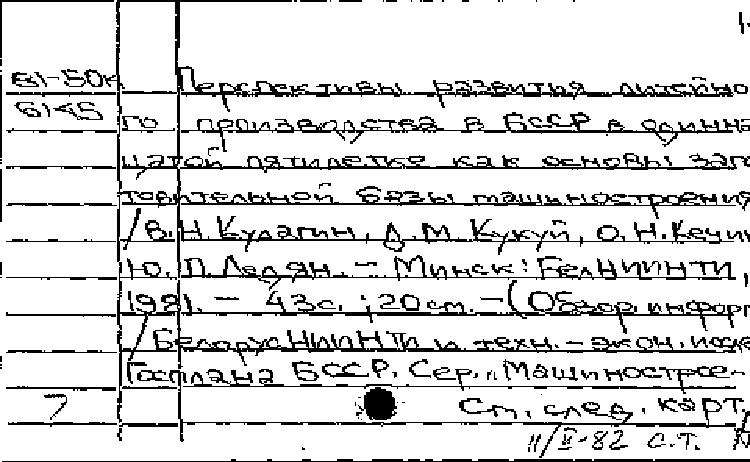 1-
81-50к Перспективы развития литейно
6145 го производства в БССР в одинна
цатой пятилетке как основы заго
товительной базы машиностроения
/ В.Н. Кулагин, Д.М. Кукуй, О.Н. Кечин
Ю.П. Ледян. - Минск: БелНИИНТИ,
1981. - 43с.; 20см. - (Обзор. информ
/ БелорусНИИНТИ и техн.-экон. иссле
Госплана БССР. Сер. "Машинострое-
7 См. след. карт.
11/II-82 С.Т. N